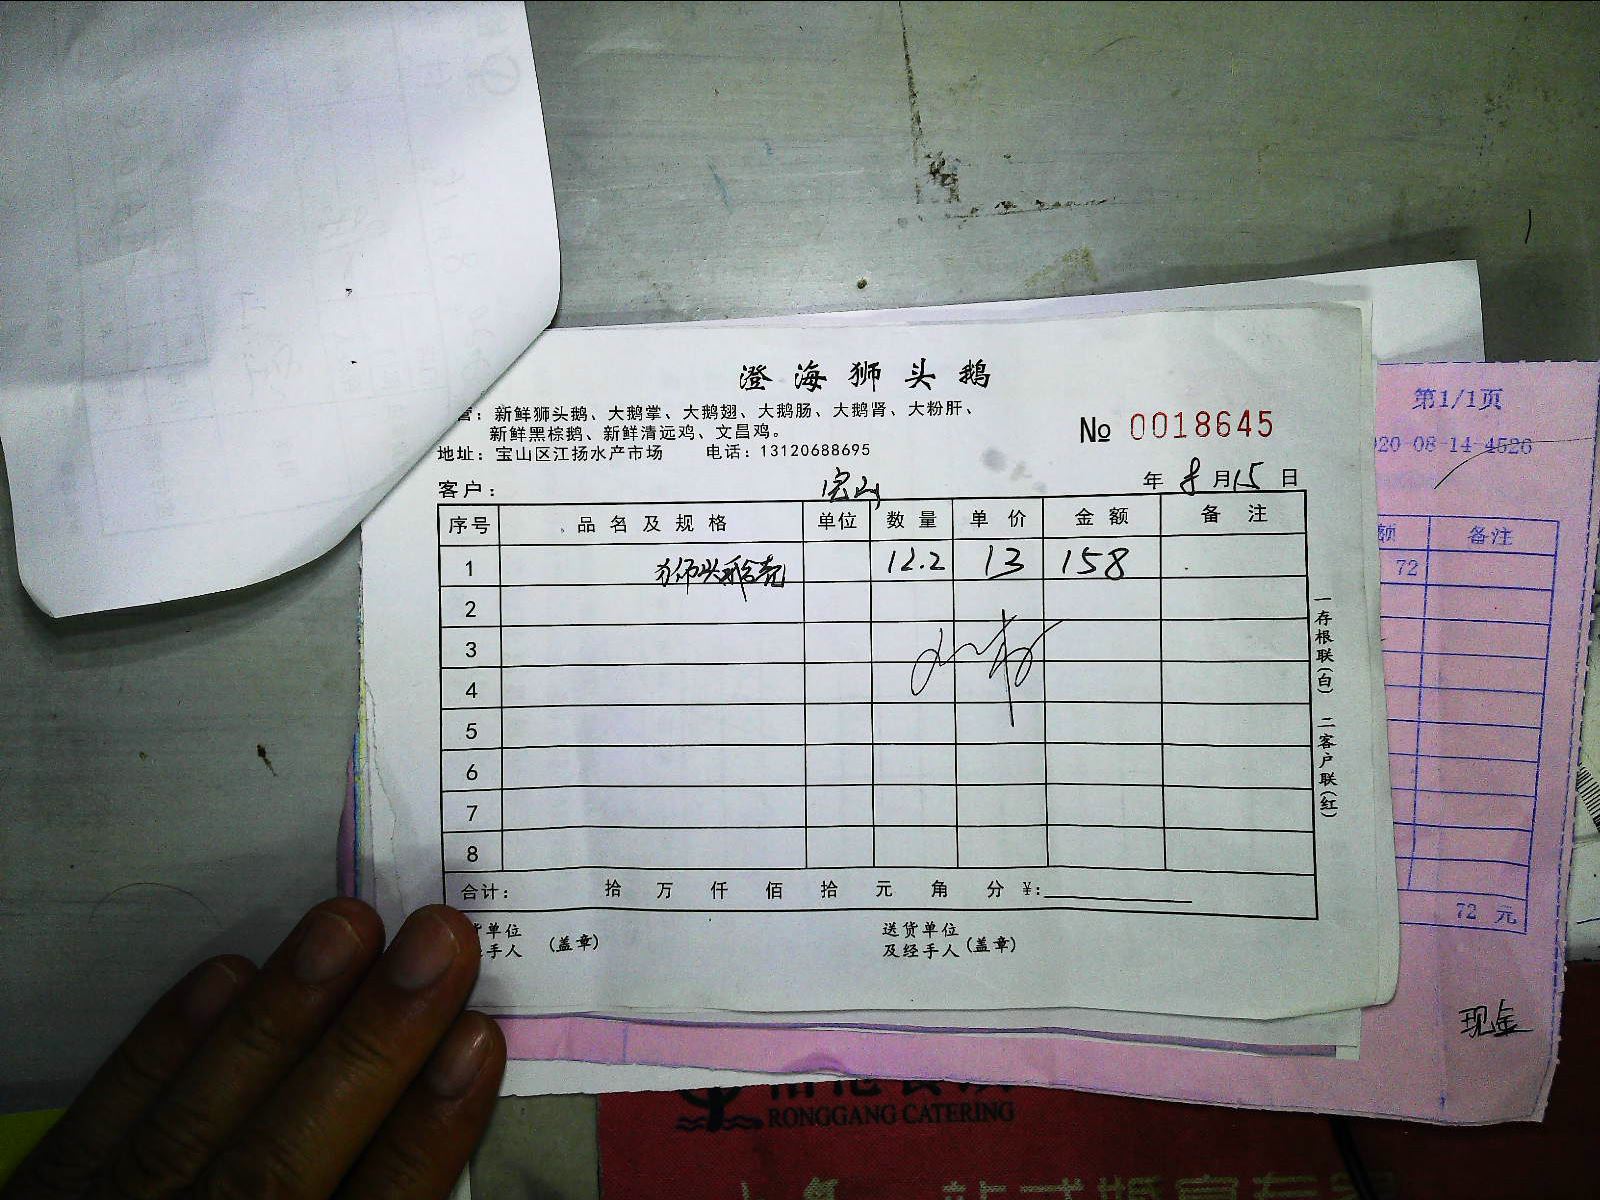 澄海狮头鹅
营：新鲜狮头鹅、大鹅掌、大鹅翅、大鹅肠、大鹅肾、大粉肝、
新鲜黑棕鹅、新鲜清远鸡、文昌鸡。
№ 0018645
地址：宝山区江扬水产市场 电话：13120688695
客户： 宝山 年 8 月 15 日
序号 品名及规格 单位 数量 单价 金额 备注
1 狮头鹅壳 12.2 13 158
2
3
4
5
6
7
8
合计： 拾 万 仟 佰 拾 元 角 分 ¥:
货单位 (盖章) 送货单位
手人 及经手人 (盖章)
一存根联(白) 二客户联(红)
第1/1页
20-08-14-4526
额 备注
72
72 元
现金
RONGGANG CATERING